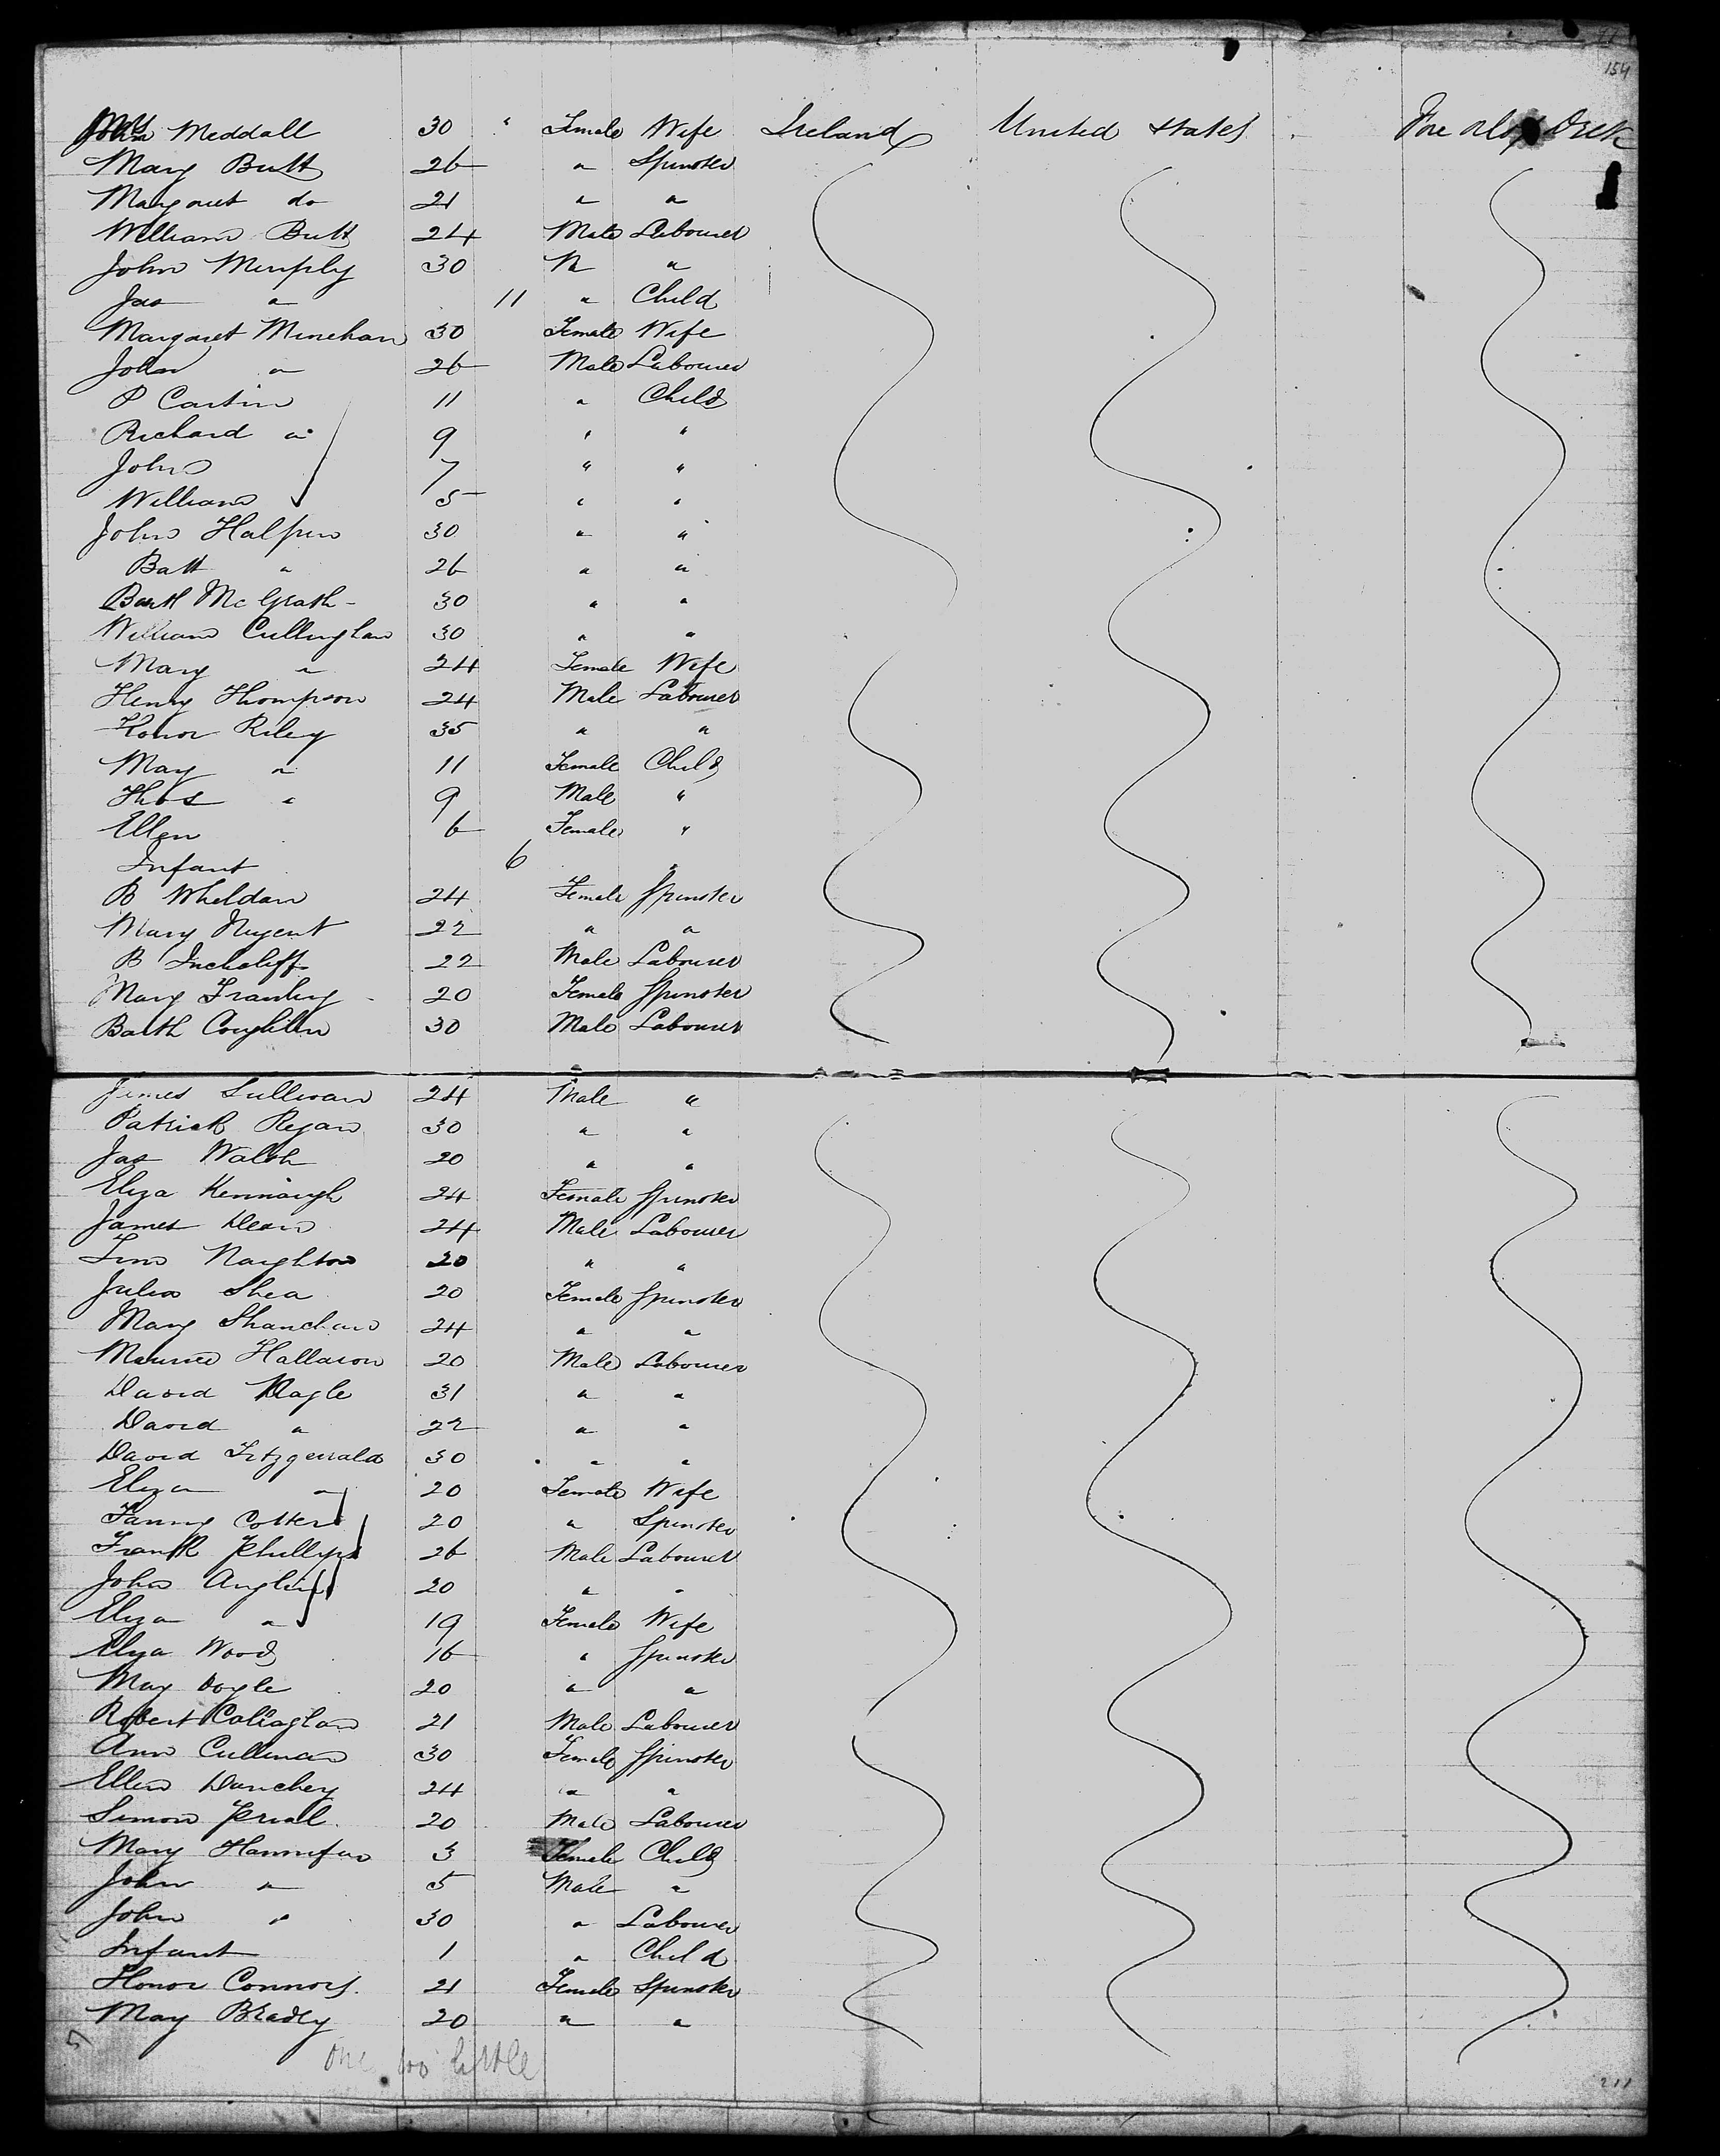 154
Mrs Meddall 30 " Female Wife Ireland United States Fore Deck
Mary Butt 26 " Spinster
Margaret do 21 " "
William Butt 24 Male Labourer
John Murphy 30 "
Jas " 11 " Child
Margaret Minehan 30 Female Wife
John " 26 Male Labourer
P Cartin 11 " Child
Richard " 9 " "
John 7 " "
William 5 " "
John Halpin 30 " "
Batt " 26 " "
Barth McGrath 30 " "
William Cullinghan 30 " "
Mary " 24 Female Wife
Henry Thompson 24 Male Labourer
Honor Riley 35 " "
May " 11 Female Child
Thos " 9 Male "
Ellen 6 Female "
Infant 6 "
B Wheldan 24 Female Spinster
Mary Nugent 22 " "
B Inchcliff 22 Male Labourer
Mary 20 Female Spinster
Barth Coughlin 30 Male Labourer
James Sullivan 24 Male "
Patrick Regan 30 " "
Jas Walsh 20 " "
Eliza Kennaugh 24 Female Spinster
James Dean 24 Male Labourer
Tim Naughton 20 " "
Julia Shea 20 Female Spinster
Mary Shanchan 24 " "
Maurice Hallaron 20 Male Labourer
David Nagle 31 " "
David " 22 " "
David Fitzgerrald 30 " "
Eliza " 20 Female Wife
Fanny Cotter 20 " Spinster
Frank Phillips 26 Male Labourer
John Anglin 20 " "
Eliza " 19 Female Wife
Eliza Wood 16 " Spinster
May Doyle 20 " "
Robert Callaghan 21 Male Labourer
Ann Cullinan 30 Female Spinster
Ellen 24 " "
Simon 20 Male Labourer
Mary Hannifan 3 Female Child
John " 5 Male "
John " 30 " Labourer
Infant 1 " Child
Honor Connors 21 Female Spinster
May Brady 20 " "
57
one too little
211